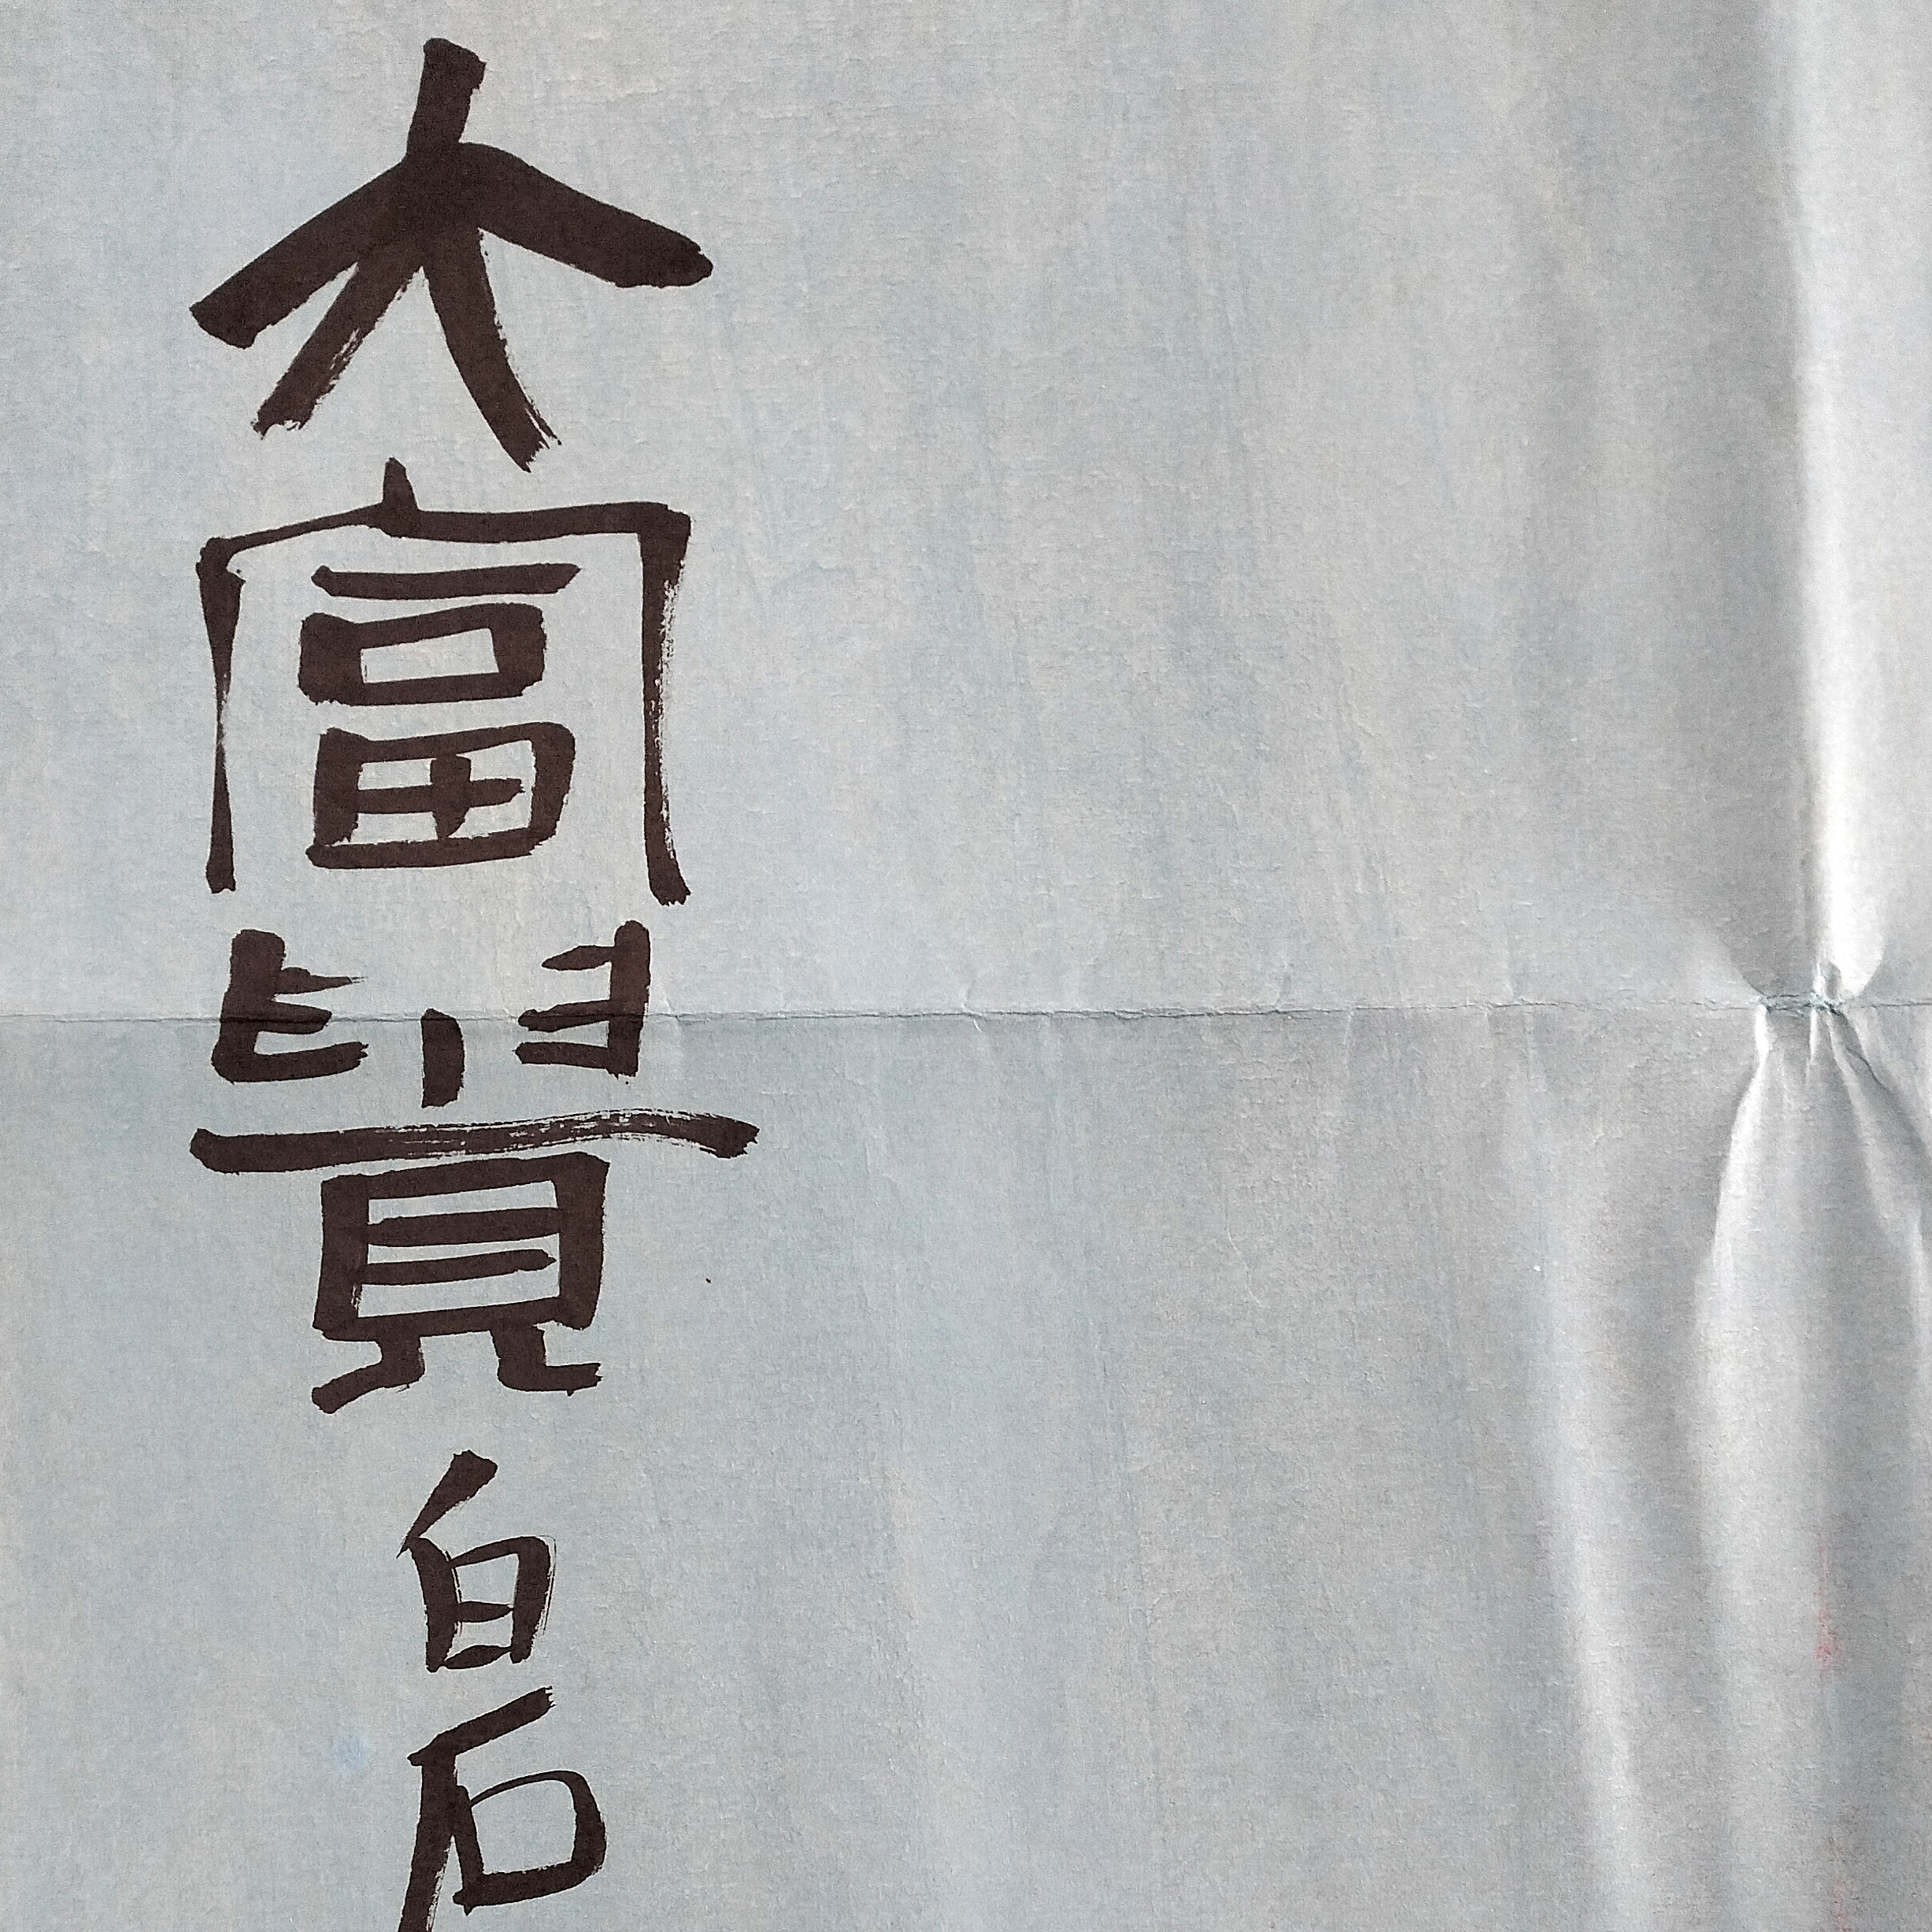 大富貴白石